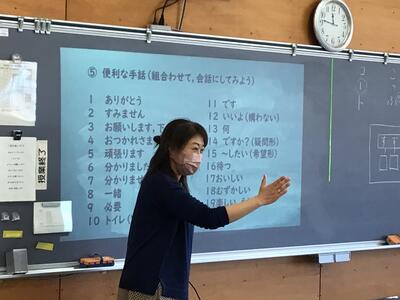 ⑤ 便利な手話(組合わせて、会話にしてみよう)
1 ありがとう
2 すみません
3 お願いします、
4 おつかれさま
5 頑張ります
6 分かりました
7 分かりませ
8 一緒
9 必要
10 トイレ(
11 です
12 いいよ(構わない)
13 何
14 ですか?(疑問形)
15 ~したい(希望形)
16待つ
17おいしい
18むずかしい
19楽しい
授業終了